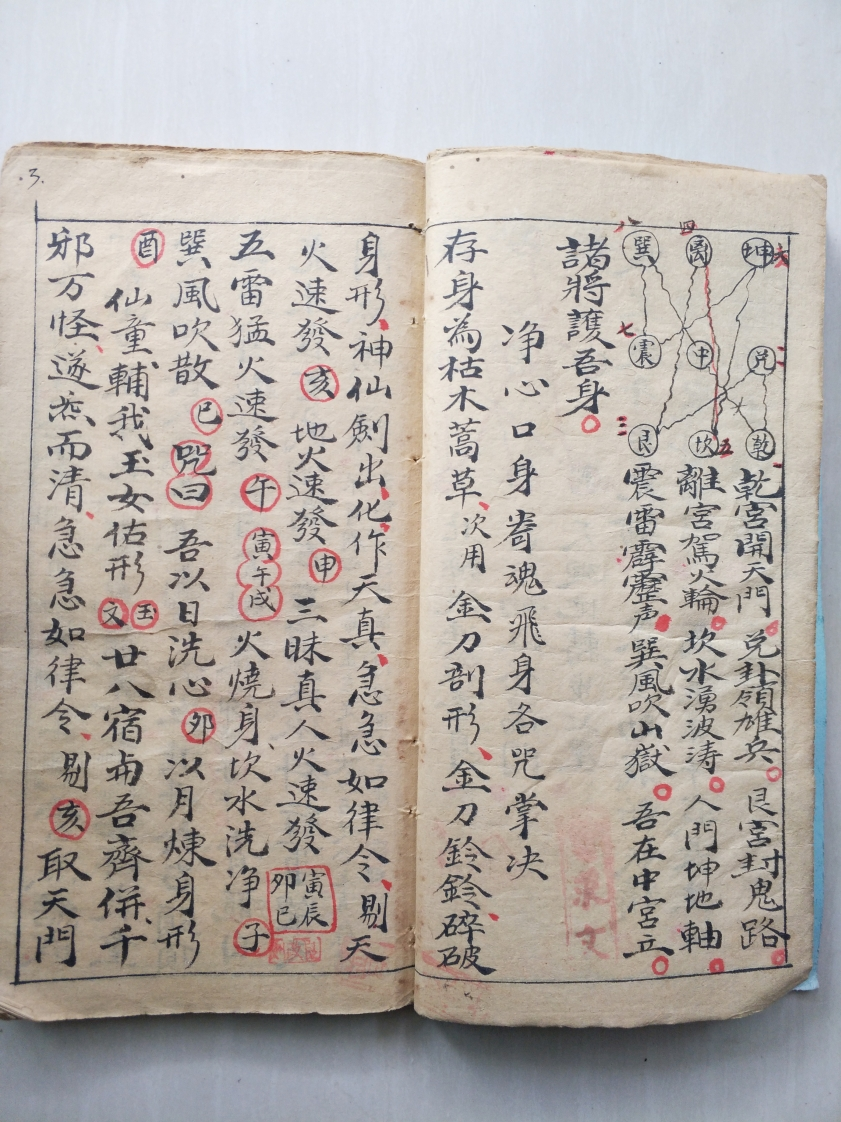 巽 離 坤
震 中 兌
艮 坎 乾
八 四 六
七 二
三 五 一
乾宮開天門兑卦領雄兵艮宮封鬼路
離宮駕火輪坎水湧波涛人門坤地軸
震雷霹靂声巽風吹山嶽吾在中宮立
諸將護吾身
净心口身寄魂飛身各咒掌决
存身為枯木蒿草次用金刀剖形金刀鈴鈴碎破
身形神仙劍出化作天真急急如律令剔天
火速發亥地火速發申三昧真人火速發寅辰卯巳
五雷猛火速發午寅午戌火燒身坎水洗净子
巽風吹散巳咒曰吾以日洗心卯以月煉身形
酉仙童輔我玉女估形玉文廿八宿与吾齊併千
邪万怪遂然而清急急如律令剔亥取天門
.3.